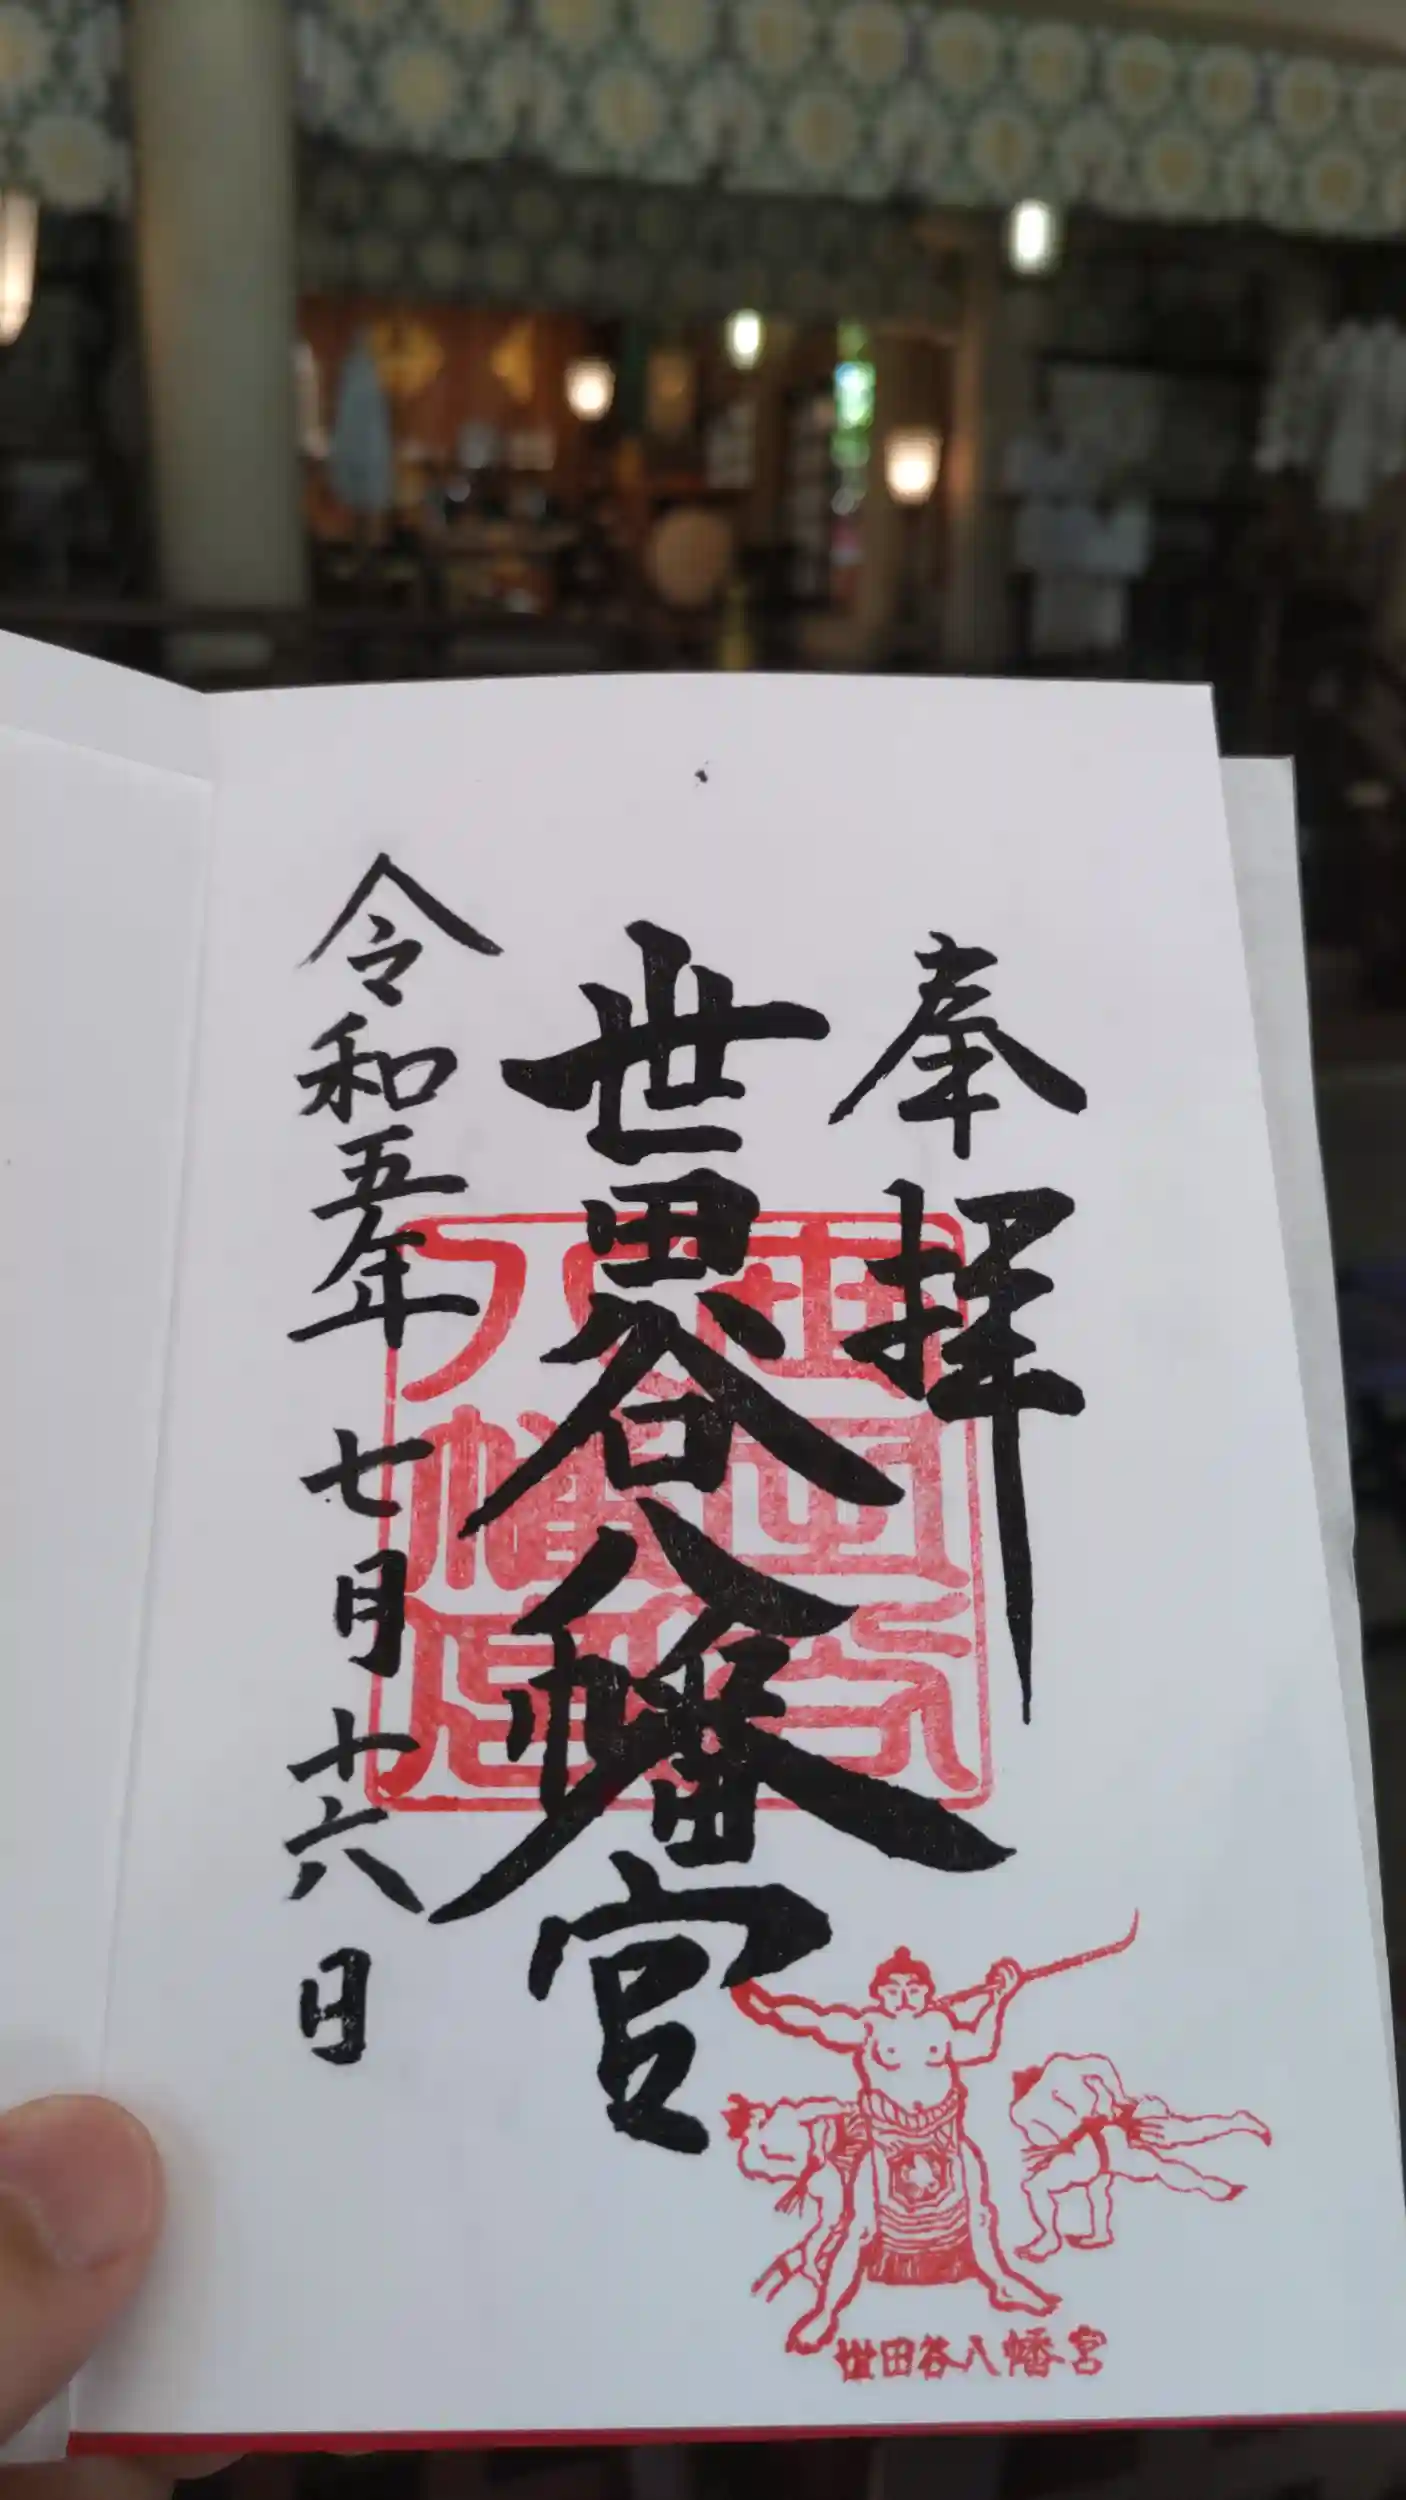 奉拝
世田谷八幡宮
令和五年七月十六日
世田谷八幡宮
世田谷八幡宮